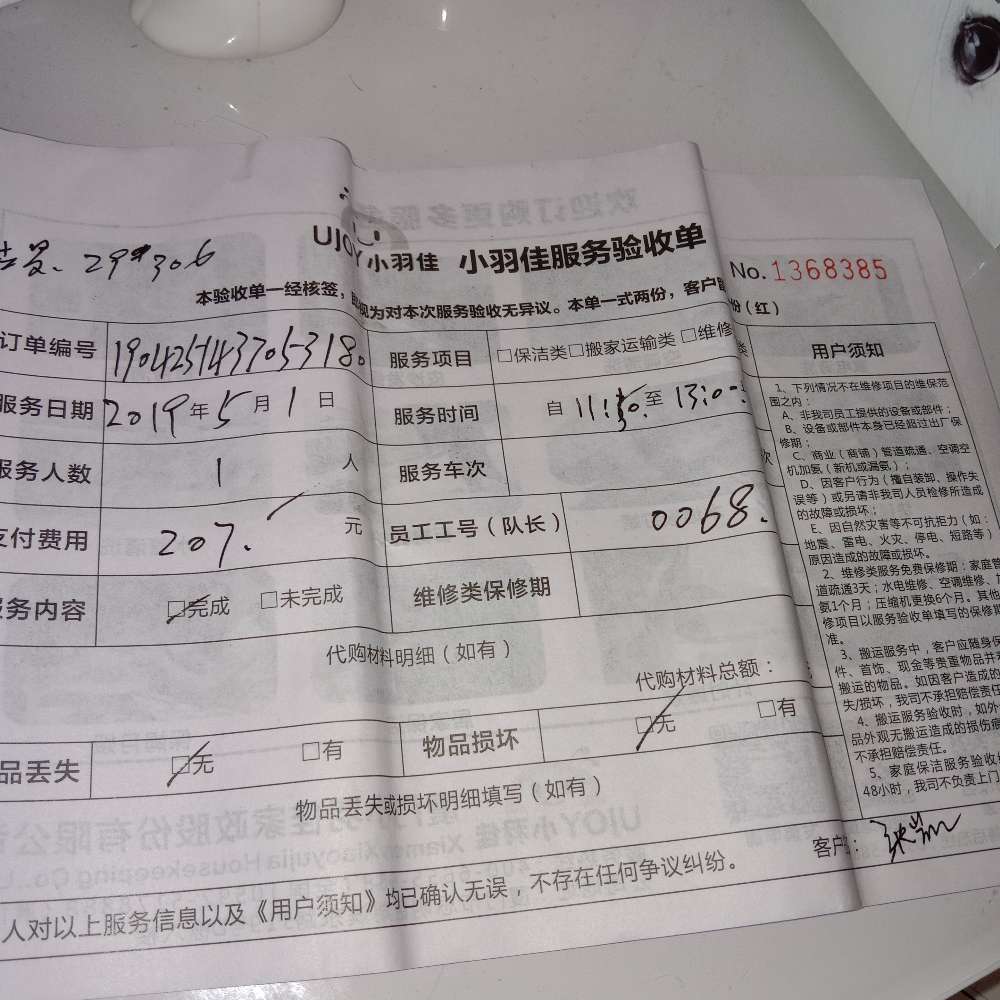 29#306
UJOY 小羽佳 小羽佳服务验收单
No. 1368385
本验收单一经核签，即视为对本次服务验收无异议。本单一式两份，客户留
份（红）
订单编号 190425143705318 服务项目 □保洁类□搬家运输类 □维修
服务日期 2019年5月1日 服务时间 自 11:30 至 13:00
服务人数 1 人 服务车次
支付费用 207. 元 员工工号（队长） 0068.
服务内容 □完成 □未完成 维修类保修期
代购材料明细（如有）
代购材料总额：
品丢失 □无 □有 物品损坏 □无 □有
物品丢失或损坏明细填写（如有）
人对以上服务信息以及《用户须知》均已确认无误，不存在任何争议纠纷。
客户
用户须知
1、下列情况不在维修项目的维保范
围之内：
A、非我司员工提供的设备或部件；
B、设备或部件本身已经超过出厂保
修期；
C、商业（商铺）管道疏通、空调空
机加氨（新机或漏氨）；
D、因客户行为（擅自装卸、操作失
误等）或另请非我司人员检修所造成
的故障或损坏；
E、因自然灾害等不可抗拒力（如：
地震、雷电、火灾、停电、短路等）
原因造成的故障或损坏。
2、维修类服务免费保修期：家庭管
道疏通3天；水电维修、空调维修、
氨1个月；压缩机更换6个月。其他
修项目以服务验收单填写的保修期
准。
3、搬运服务中，客户应随身保
件、首饰、现金等贵重物品并
搬运的物品。如因客户造成的
失/损坏，我司不承担赔偿责任
4、搬运服务验收时，如外
品外观无搬运造成的损伤痕
不承担赔偿责任。
5、家庭保洁服务验收
48小时，我司不负责上门